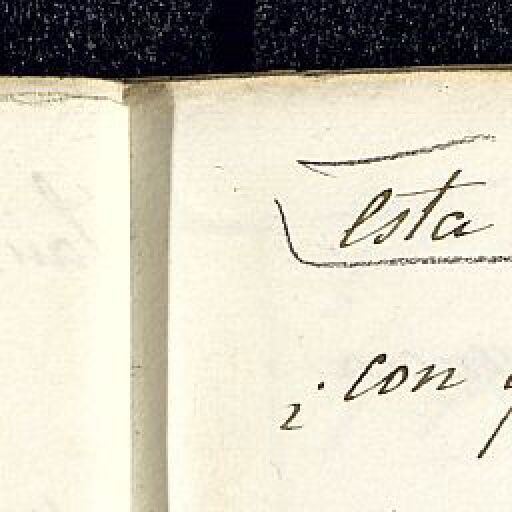 esta
¿con